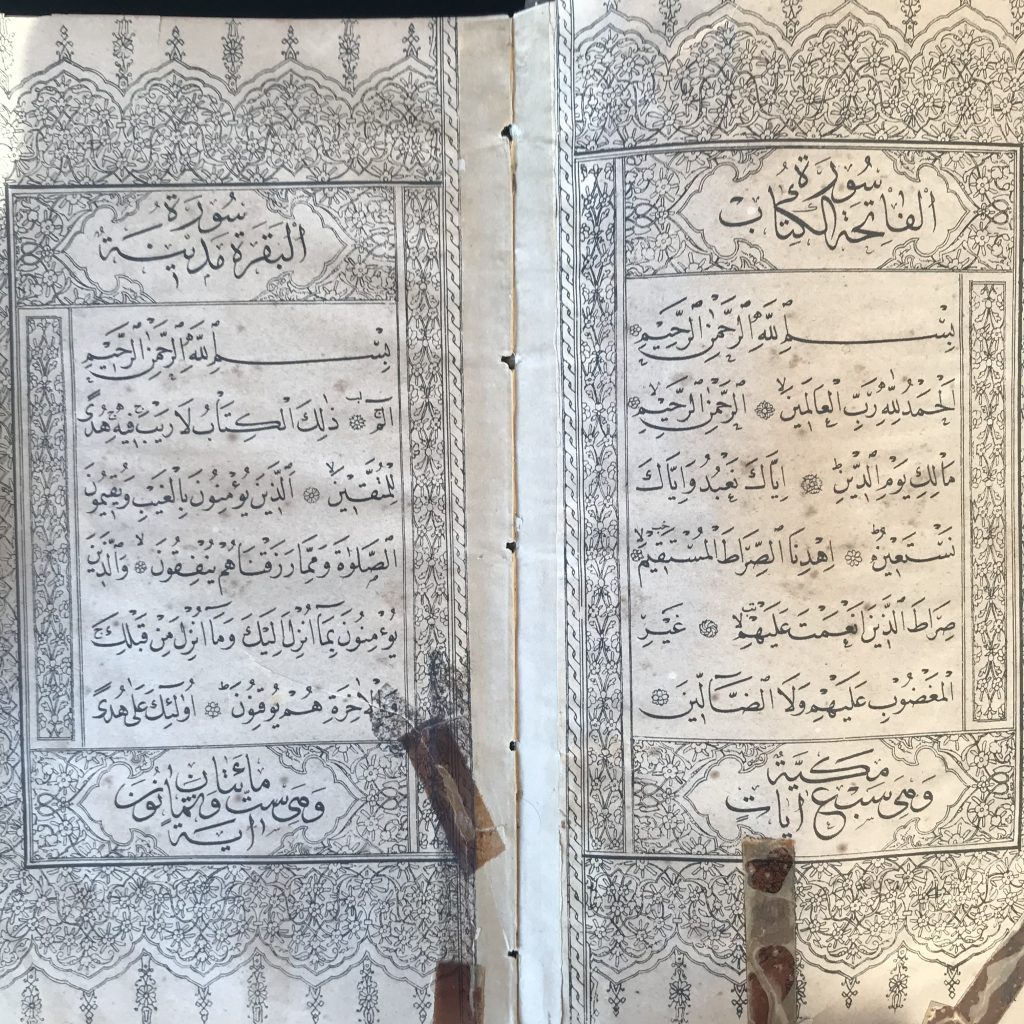 سُورَةُ
الْفَاتِحَةِ الْكِتَابِ
بِسْمِ اللّٰهِ الرَّحْمٰنِ الرَّحِيمِ
اَلْحَمْدُ لِلّٰهِ رَبِّ الْعَالَمِينَ ۙ الرَّحْمٰنِ الرَّحِيمِ ۙ
مَالِكِ يَوْمِ الدِّينِ ۜ اِيَّاكَ نَعْبُدُ وَاِيَّاكَ
نَسْتَعِينُ ۜ اِهْدِنَا الصِّرَاطَ الْمُسْتَقِيمَ ۙ
صِرَاطَ الَّذِينَ اَنْعَمْتَ عَلَيْهِمْ ۙ غَيْرِ
الْمَغْضُوبِ عَلَيْهِمْ وَلَا الضَّٓالِّينَ
مَكِّيَّةٌ
وَهِيَ سَبْعُ اٰيَاتٍ
سُورَةُ
الْبَقَرَةِ مَدَنِيَّةٌ
بِسْمِ اللّٰهِ الرَّحْمٰنِ الرَّحِيمِ
الٓمٓ ۚ ذٰلِكَ الْكِتَابُ لَا رَيْبَ ۛ فِيهِ ۛ هُدًى
لِلْمُتَّقِينَ ۙ اَلَّذِينَ يُؤْمِنُونَ بِالْغَيْبِ وَيُقِيمُونَ
الصَّلٰوةَ وَمِمَّا رَزَقْنَاهُمْ يُنْفِقُونَ ۙ وَالَّذِينَ
يُؤْمِنُونَ بِمَٓا اُنْزِلَ اِلَيْكَ وَمَٓا اُنْزِلَ مِنْ قَبْلِكَ ۚ
وَبِالْاٰخِرَةِ هُمْ يُوقِنُونَ ۜ اُولٰٓئِكَ عَلٰى هُدًى
وَهِيَ مِائَتَانِ وَسِتٌّ وَثَمَانُونَ
اٰيَةً